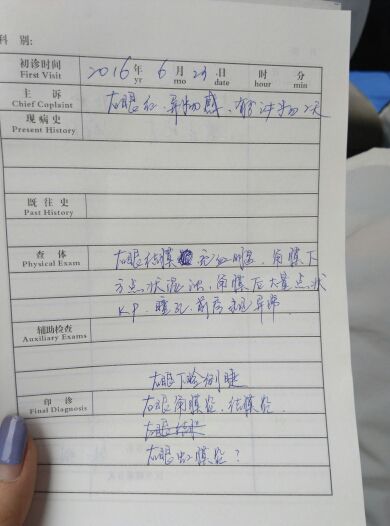 科 别:
初诊时间 2016 年 6 月 23 日 时 分
First Visit yr mo date hour min
主 诉 右眼红、异物感、有分泌物2天
Chief Coplaint
现病史
Present History
既往史
Past History
查 体 右眼结膜充血明显,角膜下
Physical Exam
方点状混浊,角膜后大量点状
KP,瞳孔、前房未见异常
辅助检查
Auxiliary Exams
右眼下睑倒睫
印 诊 右眼角膜炎,结膜炎.
Final Diagnosis
右眼虹膜炎?